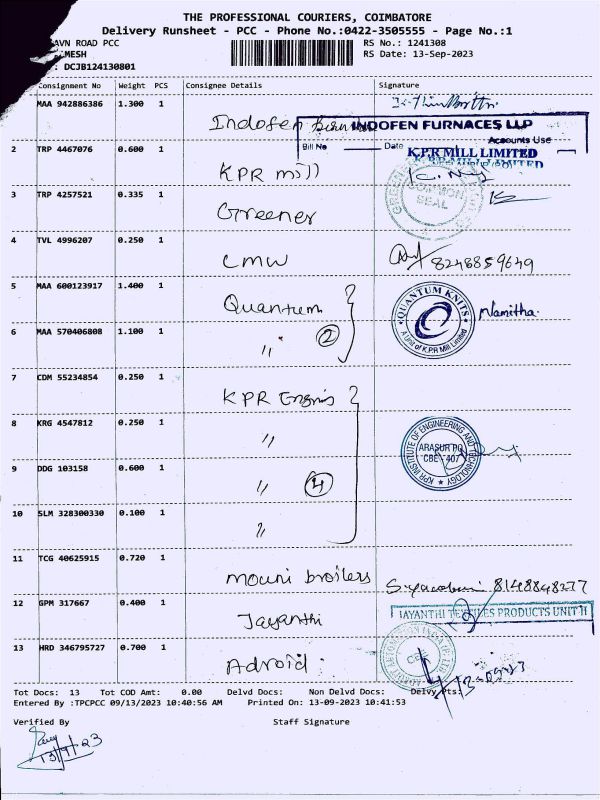 THE PROFESSIONAL COURIERS, COIMBATORE
Delivery Runsheet - PCC - Phone No.:0422-3505555 - Page No.:1
AVN ROAD PCC RS No.: 1241308
MESH RS Date: 13-Sep-2023
: DCJB124130801
Consignment No Weight PCS Consignee Details Signature
MAA 942886386 1.300 1 Indofen
INDOFEN FURNACES LLP
Accounts Use
Bill No Date
2 TRP 4467076 0.600 1 KPR mill K.P.R MILL LIMITED
3 TRP 4257521 0.335 1 Greener COMMON SEAL
4 TVL 4996207 0.250 1 CMW 8248859649
5 MAA 600123917 1.400 1 Quantum QUANTUM KNITS A Unit of K.P.R Mill Limited Namitha.
6 MAA 570406808 1.100 1 〃 2
7 CDM 55234854 0.250 1 KPR Engnis
8 KRG 4547812 0.250 1 〃 KPR INSTITUTE OF ENGINEERING AND TECHNOLOGY ARASUR PO CBE - 407
9 DDG 103158 0.600 1 〃 4
10 SLM 328300330 0.100 1 〃
11 TCG 40625915 0.720 1 Mouni broilers 8148848277
12 GPM 317667 0.400 1 Jayanthi JAYANTHI TEXTILES PRODUCTS UNIT II
13 HRD 346795727 0.700 1 Adroid. CBE
Tot Docs: 13 Tot COD Amt: 0.00 Delvd Docs: Non Delvd Docs: Delvy Pts:
Entered By :TPCPCC 09/13/2023 10:40:56 AM Printed On: 13-09-2023 10:41:53
Verified By Staff Signature
13/9/23